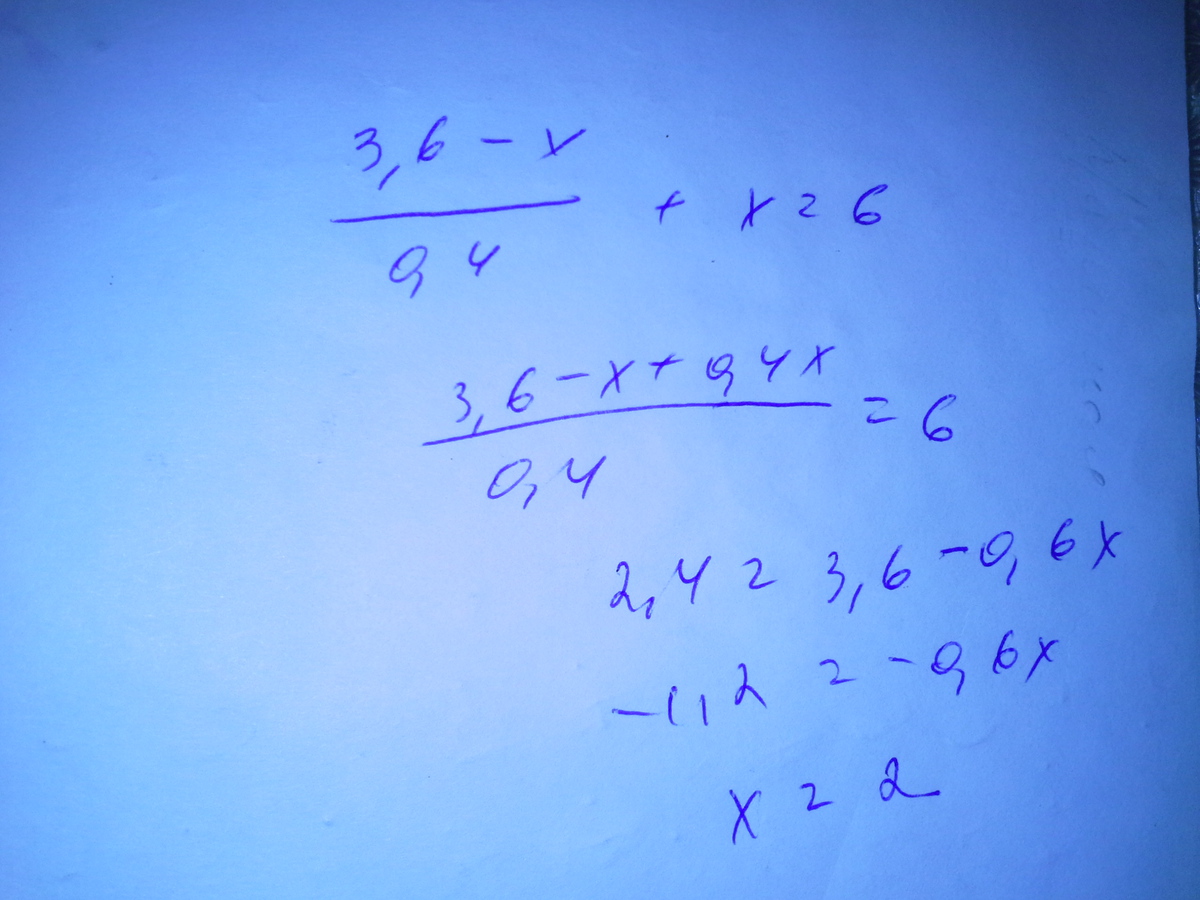 3,6 - x
/ 0,4 + x = 6
3,6 - x + 0,4x
/ 0,4 = 6
2,4 = 3,6 - 0,6x
-1,2 = -0,6x
x = 2